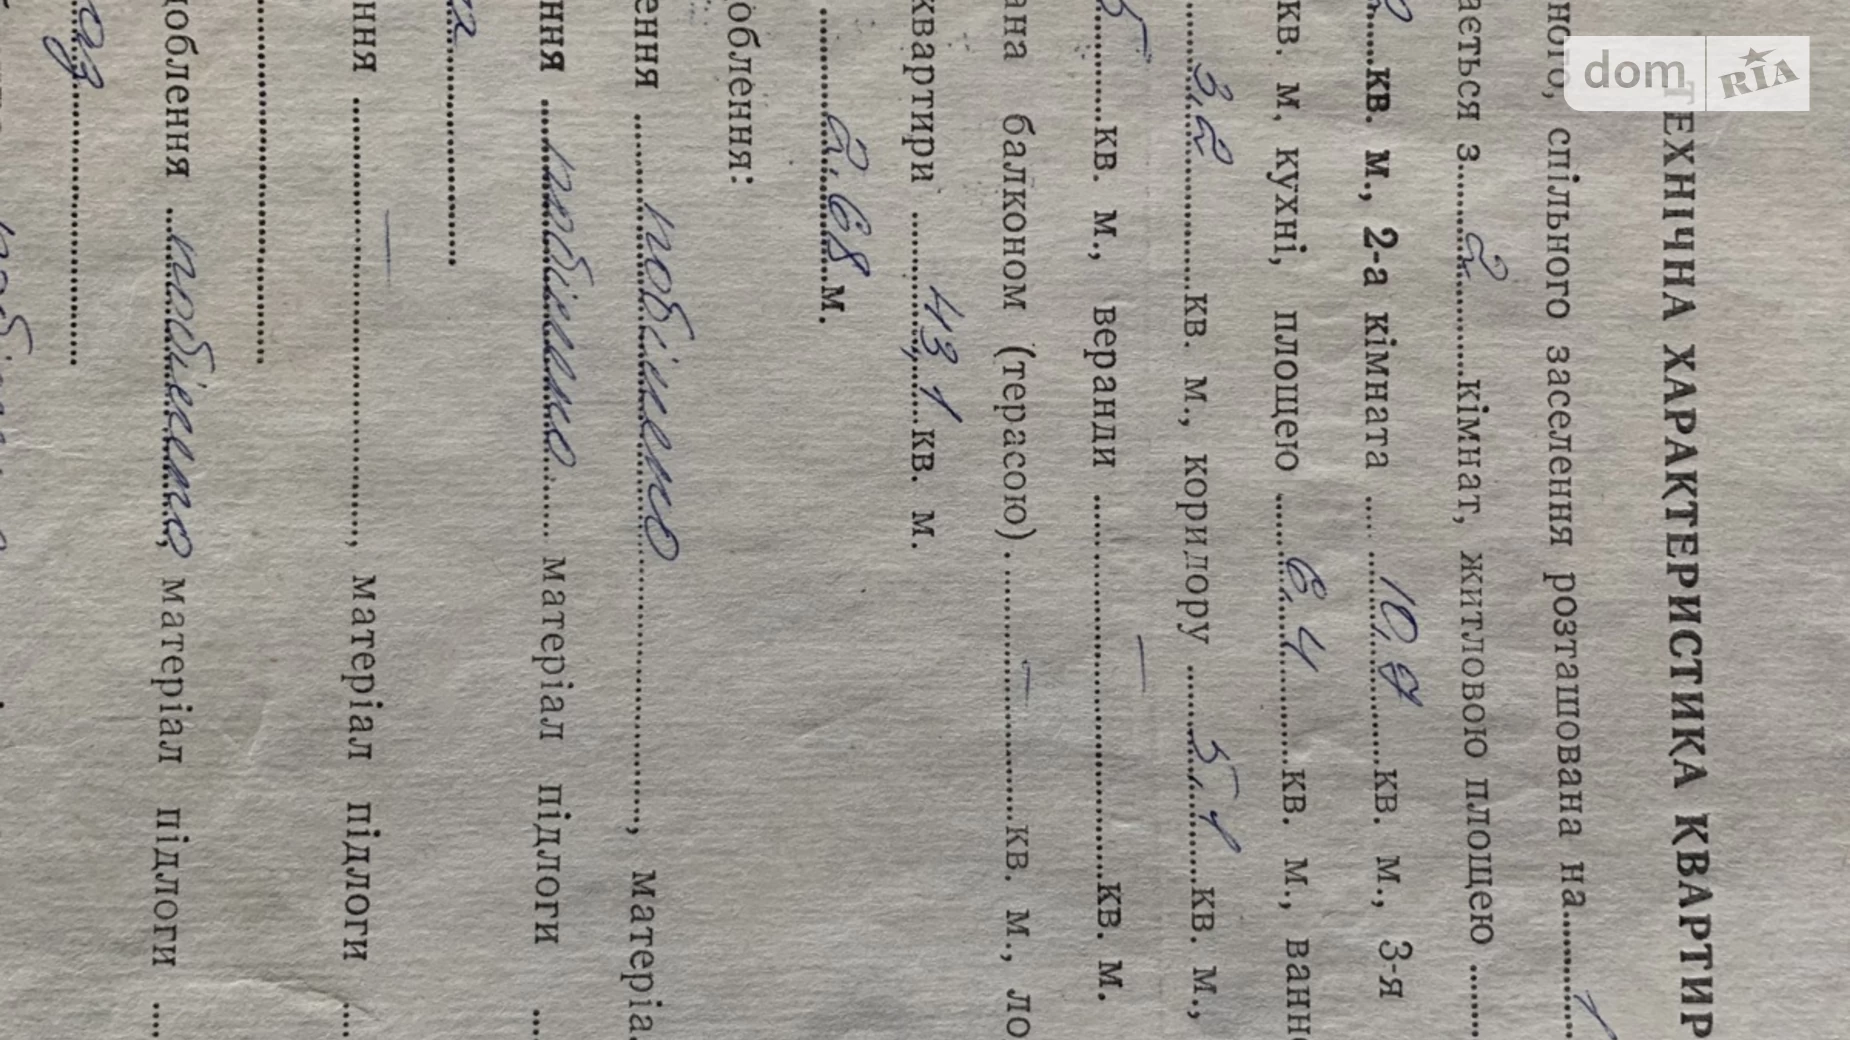 dom RIA
ТЕХНІЧНА ХАРАКТЕРИСТИКА КВАРТИР
ного, спільного заселення розташована на
ається з 2 кімнат, житловою площею
кв. м., 2-а кімната 10,9 кв. м., 3-я
кв. м. кухні, площею 6,4 кв. м., ванн
3,2 кв. м., коридору 5,1 кв. м.,
кв. м., веранди — кв. м.
ана балконом (терасою) — кв. м., ло
квартири 43,1 кв. м.
2.68 м.
облення:
ення побілено, матеріа
ння побілено матеріал підлоги
ння —, матеріал підлоги
облення побілено, матеріал підлоги